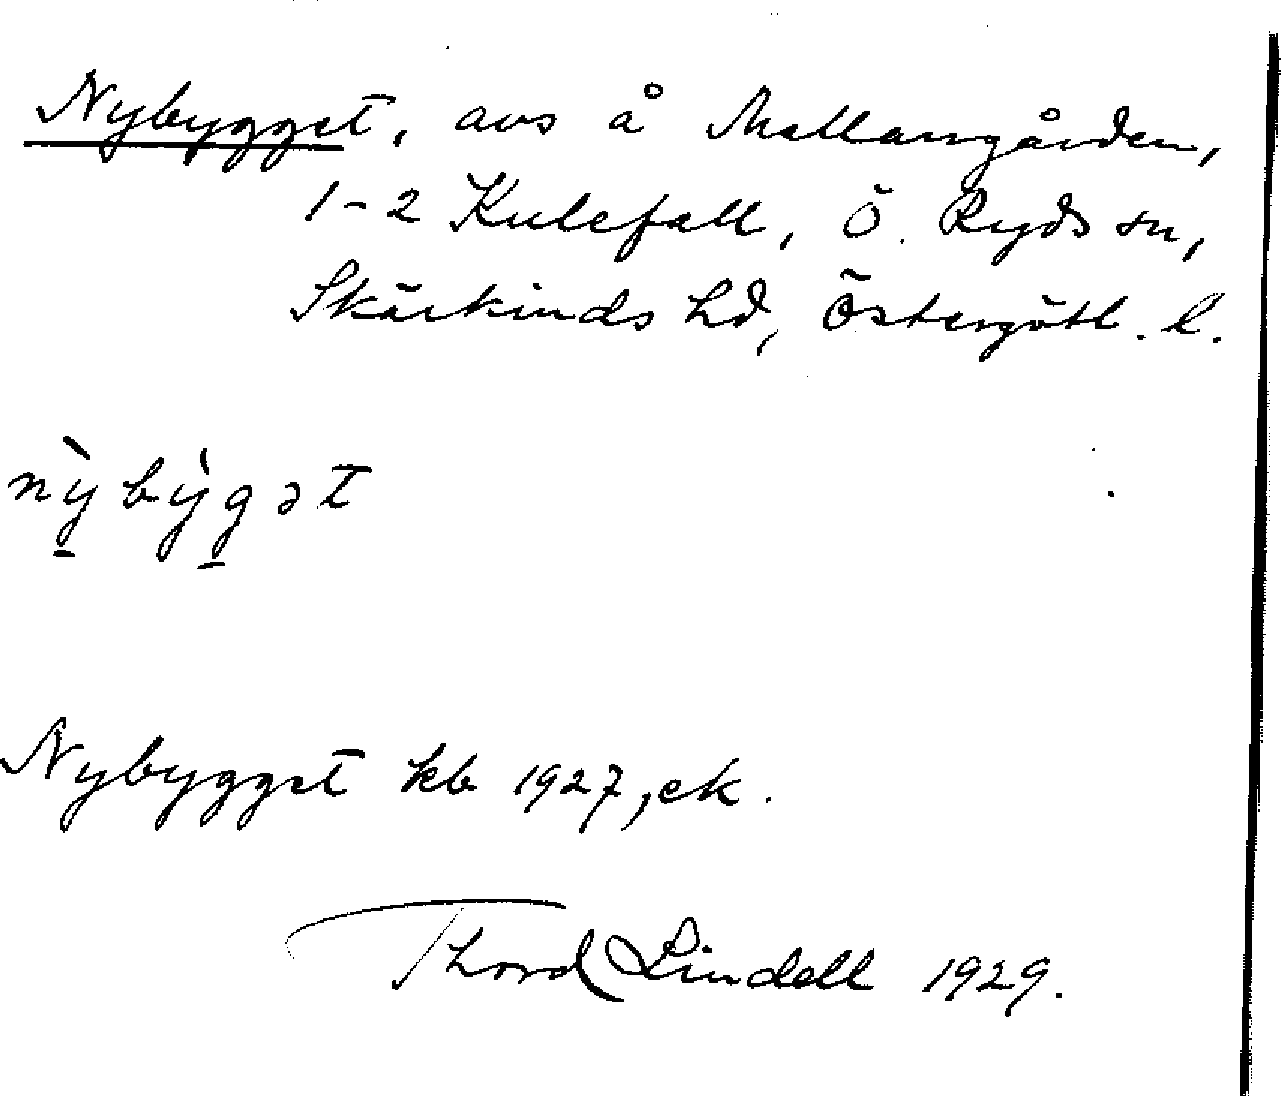 Nybygget, avs å Mellangården,
1-2 Kulefall, Ö. Ryds sn,
Skärkinds hd, Östergötl. l.
nỳbỳgət
Nybygget kb 1927, ek.
Thord Lindell 1929.